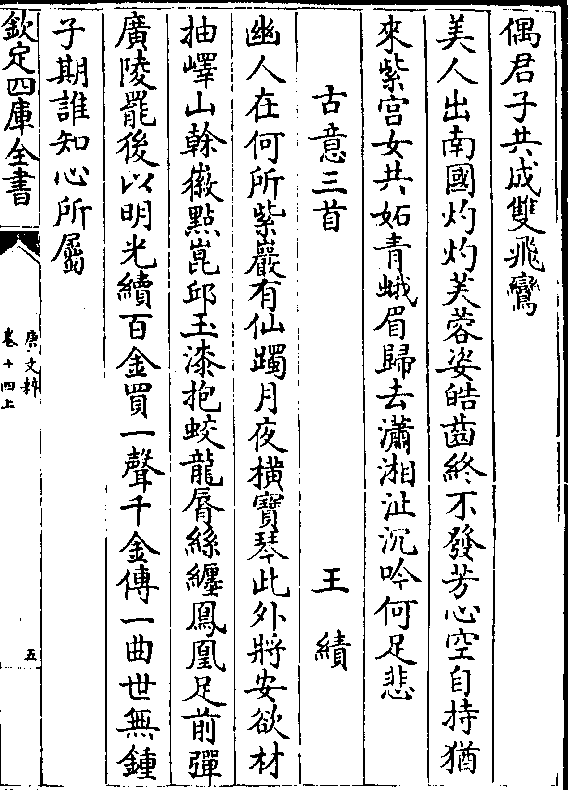 偶君子共成雙飛鸞
美人出南國灼灼芙蓉姿皓齒終不發芳心空自持猶
來紫宮女共妬青蛾眉歸去瀟湘沚沉吟何足悲
古意三首　王績
幽人在何所紫巖有仙躅月夜横寶琴此外將安欲材
抽嶧山幹徽點崑邱玉漆抱蛟龍脣絲纒鳳凰足前彈
廣陵罷後以明光續百金買一聲千金傳一曲世無鍾
子期誰知心所屬
欽定四庫全書
唐文粹
卷十四上
五